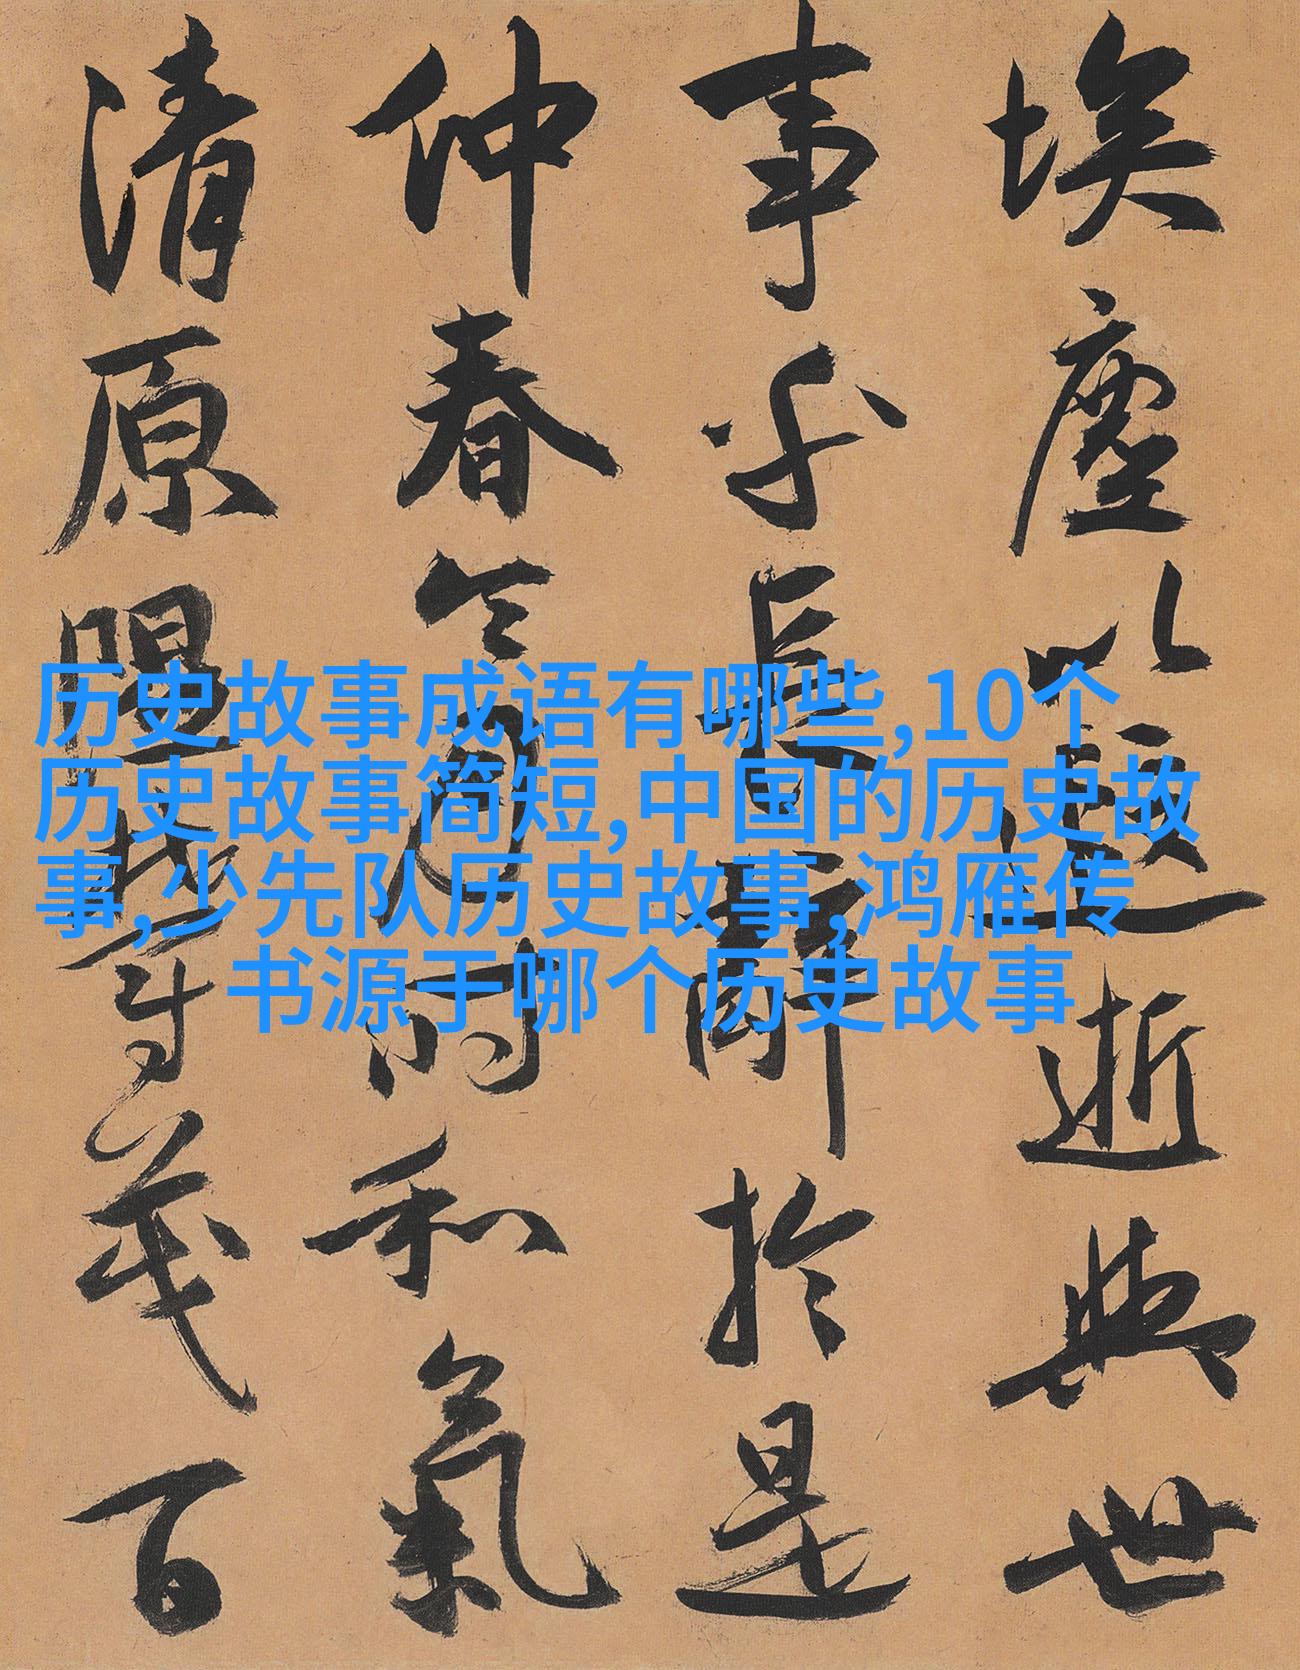 埃塵以遐逝與世
事乎長辭於是
仲春令月時和氣
清原隰鬱茂百
历史故事成语有哪些,10个
历史故事简短,中国的历史故
事,少先队历史故事,鸿雁传
书源于哪个历史故事